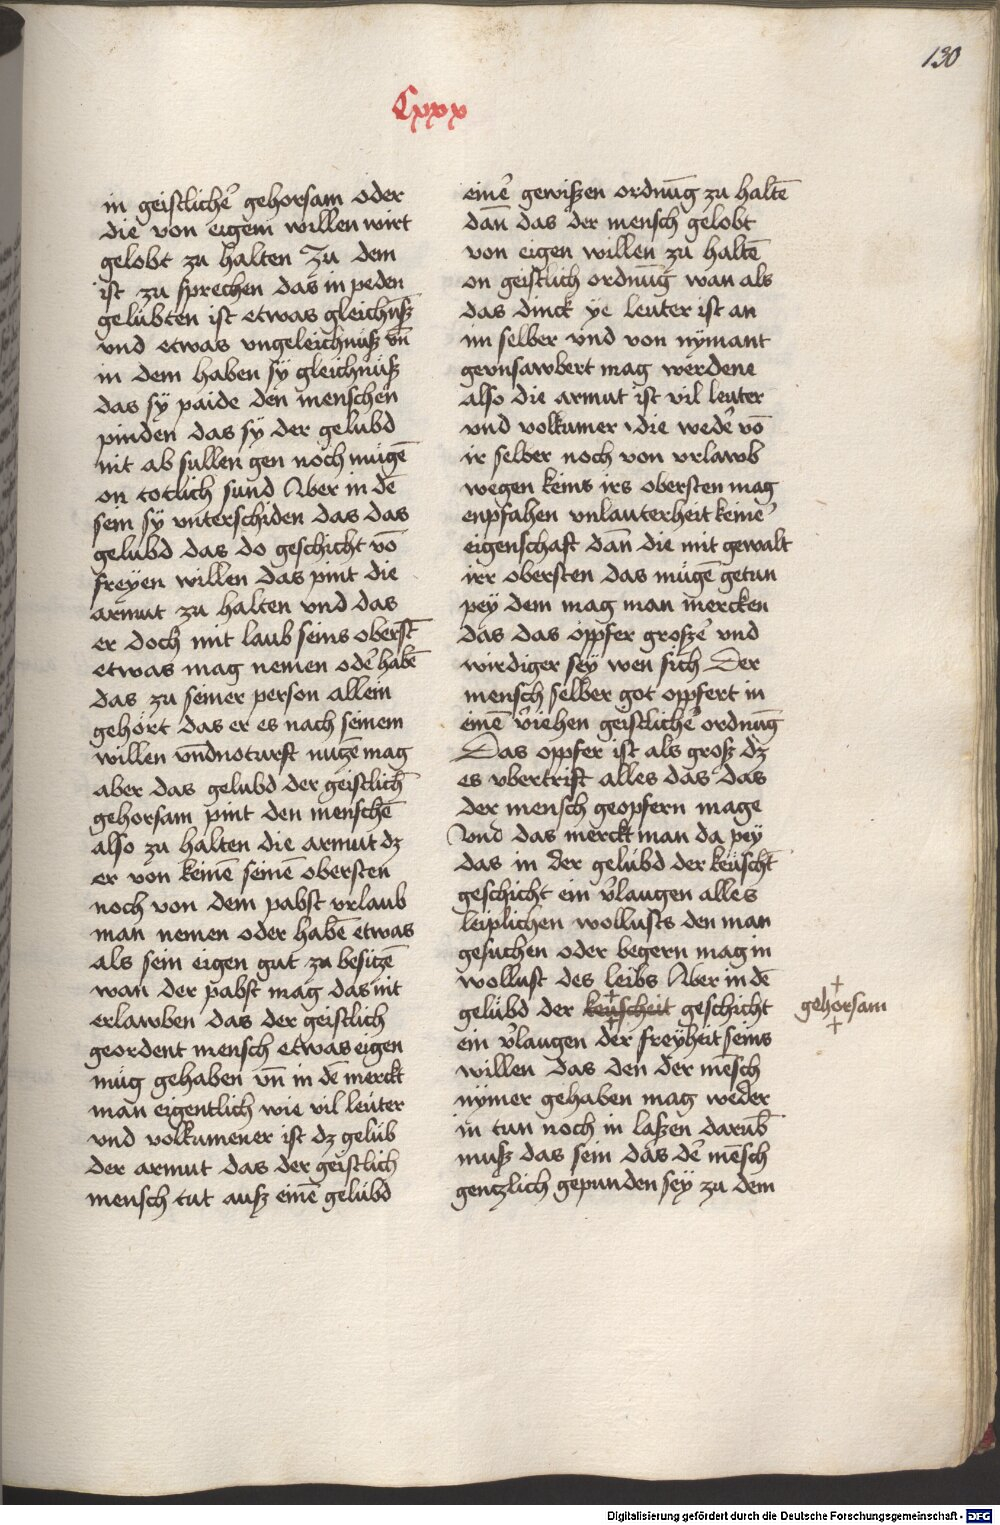 130
Cxxx
in geistlicher̄ gehorsam oder
die von eigem willen wirt
gelobt zu halten Zu dem
ist zu sprechen das in peden
gelubten ist etwas gleichnuß
vnd etwas vngeleichnuß vn̄
in dem haben sÿ gleichnuß
das sÿ paide den menschen
pinden das sÿ der gelubd
nit ab sullen gen noch mugē
on totlich sund Aber in dē
sein sÿ vnterschiden das das
gelubd das do geschicht vō
freÿen willen das pint die
armut zu halten vnd das
er doch mit laub seins oberst̄
etwas mag nemen odẽ habē
das zu seiner person allein
gehört das er es nach seinem
willen vnd noturft nutzē mag
aber das gelubd der geistlich̄
gehorsam pint den menschē
also zu halten die armut dz
er von keinē seinē obersten
noch von dem pabst vrlaub
man nemen oder habē etwas
als sein eigen gut zu besitzē
wan der pabst mag das nit
erlawben das der geistlich
geordent mensch etwas eigen
müg gehaben vn̄ in dē merckt
man eigentlich wie vil leuter
vnd volkumener ist dz gelüb
der armut das der geistlich
mensch tut auß einē gelübd
einẽ gewißen ordnūg zu haltē
dan̄ das der mensch gelobt
von eigen willen zu haltē
on geistlich ordnūg wan als
das dinck ÿe leuter ist an
im selber vnd von nÿmant
geunsawbert mag werdene
also die armut ist vil leuter
vnd volkumer die wedẽ vō
ir selber noch von vrlawb
wegen keins irs obersten mag
enpfahen vnlauterheit keinẽ
eigenschaft dan̄ die mit gewalt
irr obersten das mügē getun
peÿ dem mag man mercken
das das oppfer großẽ vnd
wirdiger seÿ wen sich Der
mensch selber got oppfert in
einē v̄iehen geistlichẽ ordnūg
Das oppfer ist als groß dz
es vbertrift alles das das
der mensch geopfern mage
Vnd das merckt man da peÿ
das in der gelübd der keuscht̄
geschicht ein v̄laugen alles
leiplichen wollusts den man
gesuchen oder begern mag in
wollust des leibs Aber in dē
gelübd der keuscheit geschicht gehorsam
ein v̄laugen der freÿheit seins
willen das den der mēsch
nÿmer gehaben mag weder
in tun noch in laßen darūb
muß das sein das dẽ mēsch
gentzlich gepunden seÿ zu dem
Digitalisierung gefördert durch die Deutsche Forschungsgemeinschaft - DFG